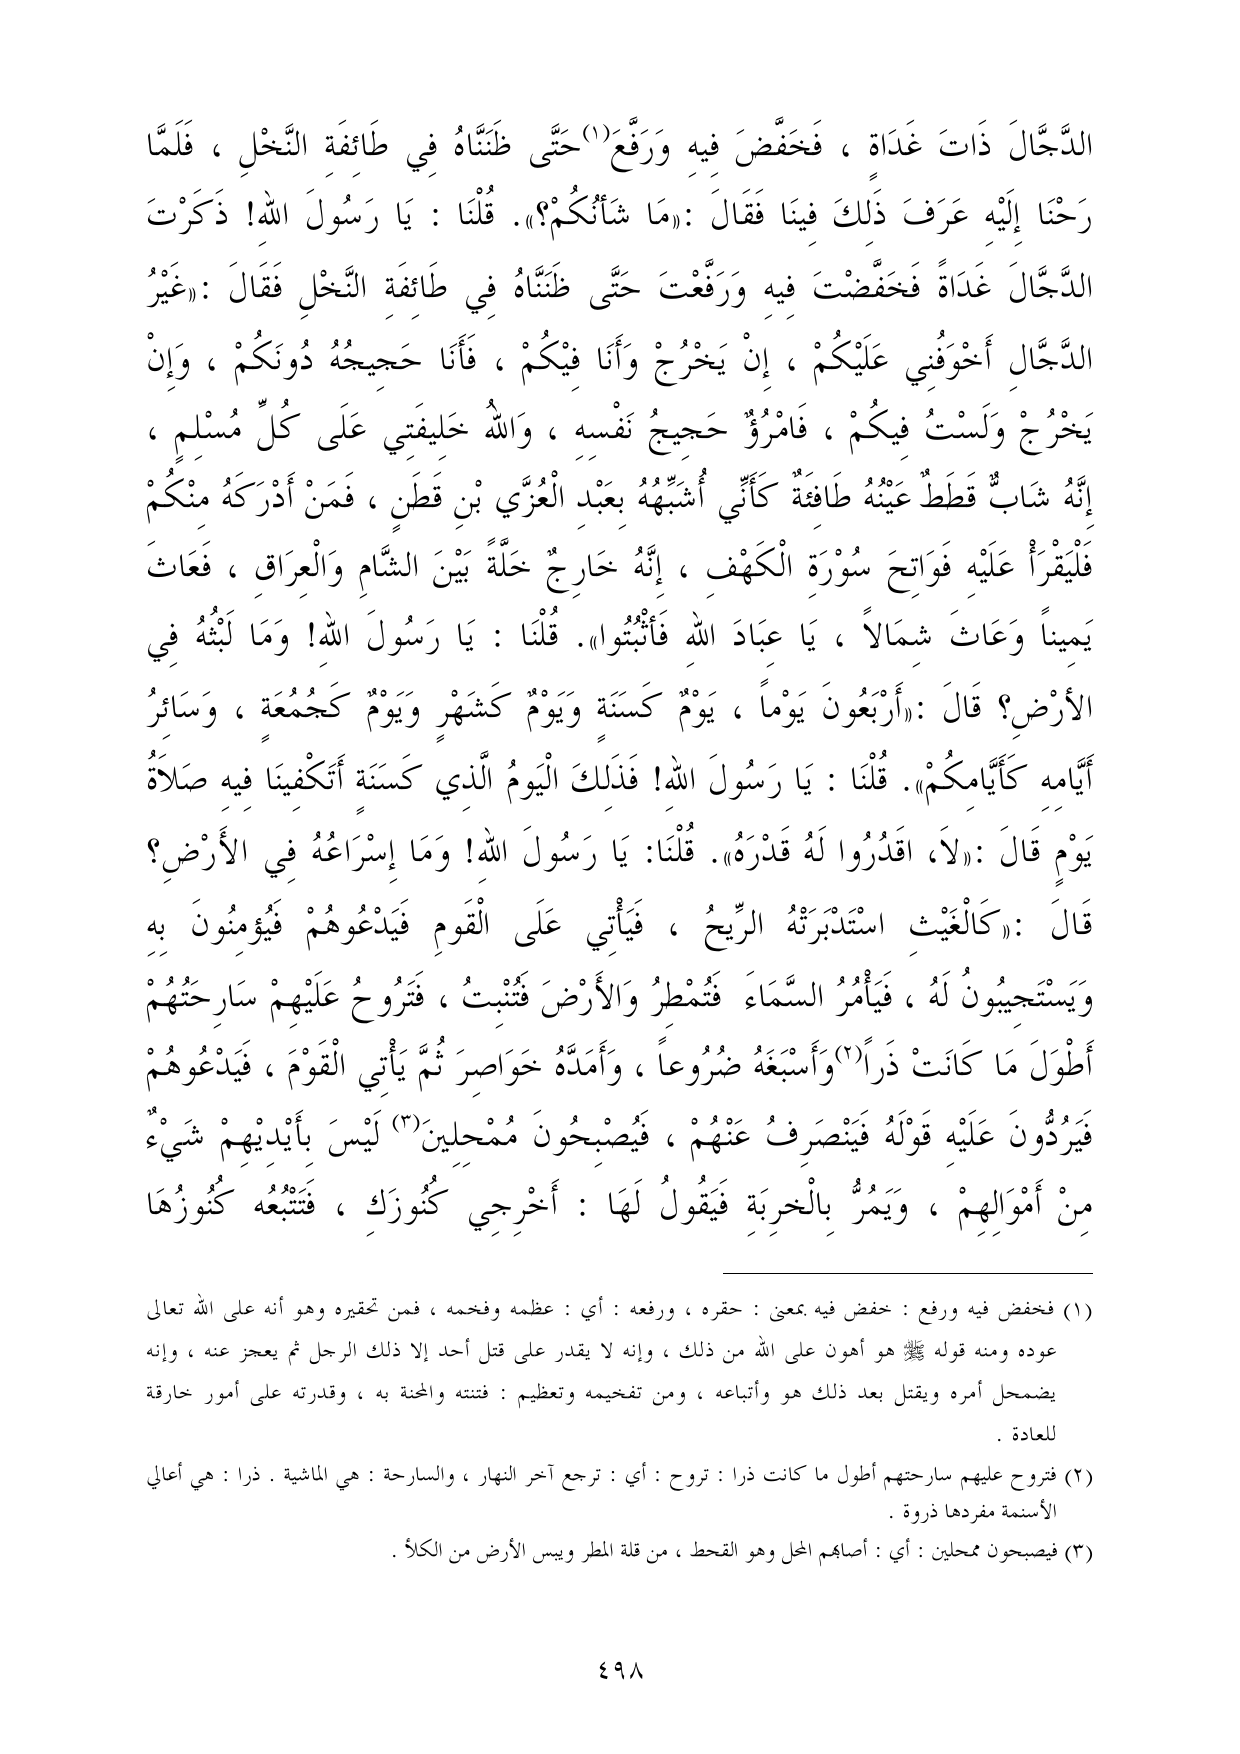 الدَّجَّالَ ذَاتَ غَدَاةٍ ، فَخَفَّضَ فِيهِ وَرَفَّعَ(١) حَتَّى ظَنَنَّاهُ فِي طَائِفَةِ النَّخْلِ ، فَلَمَّا
رَحْنَا إِلَيْهِ عَرَفَ ذَلِكَ فِينَا فَقَالَ :«مَا شَأنُكُمْ؟». قُلْنَا : يَا رَسُولَ اللهِ! ذَكَرْتَ
الدَّجَّالَ غَدَاةً فَخَفَّضْتَ فِيهِ وَرَفَّعْتَ حَتَّى ظَنَنَّاهُ فِي طَائِفَةِ النَّخْلِ فَقَالَ :«غَيْرُ
الدَّجَّالِ أَخْوَفُنِي عَلَيْكُمْ ، إِنْ يَخْرُجْ وَأَنَا فِيْكُمْ ، فَأَنَا حَجِيجُهُ دُونَكُمْ ، وَإِنْ
يَخْرُجْ وَلَسْتُ فِيكُمْ ، فَامْرُؤٌ حَجِيجُ نَفْسِهِ ، وَاللهُ خَلِيفَتِي عَلَى كُلِّ مُسْلِمٍ ،
إِنَّهُ شَابٌّ قَطَطٌ عَيْنُهُ طَافِئَةٌ كَأَنِّي أُشَبِّهُهُ بِعَبْدِ الْعُزَّي بْنِ قَطَنٍ ، فَمَنْ أَدْرَكَهُ مِنْكُمْ
فَلْيَقْرَأْ عَلَيْهِ فَوَاتِحَ سُوْرَةِ الْكَهْفِ ، إِنَّهُ خَارِجٌ خَلَّةً بَيْنَ الشَّامِ وَالْعِرَاقِ ، فَعَاثَ
يَمِيناً وَعَاثَ شِمَالاً ، يَا عِبَادَ اللهِ فَأثْبُتُوا». قُلْنَا : يَا رَسُولَ اللهِ! وَمَا لَبْثُهُ فِي
الأرْضِ؟ قَالَ :«أَرْبَعُونَ يَوْماً ، يَوْمٌ كَسَنَةٍ وَيَوْمٌ كَشَهْرٍ وَيَوْمٌ كَجُمُعَةٍ ، وَسَائِرُ
أَيَّامِهِ كَأَيَّامِكُمْ». قُلْنَا : يَا رَسُولَ اللهِ! فَذَلِكَ الْيَومُ الَّذِي كَسَنَةٍ أَتَكْفِينَا فِيهِ صَلاَةُ
يَوْمٍ قَالَ :«لاَ، اقَدُرُوا لَهُ قَدْرَهُ». قُلْنَا: يَا رَسُولَ اللهِ! وَمَا إِسْرَاعُهُ فِي الأَرْضِ؟
قَالَ :«كَالْغَيْثِ اسْتَدْبَرَتْهُ الرِّيحُ ، فَيَأْتِي عَلَى الْقَومِ فَيَدْعُوهُمْ فَيُؤمِنُونَ بِهِ
وَيَسْتَجِيبُونُ لَهُ ، فَيَأْمُرُ السَّمَاءَ فَتُمْطِرُ وَالأَرْضَ فَتُنْبِتُ ، فَتَرُوحُ عَلَيْهِمْ سَارِحَتُهُمْ
أَطْوَلَ مَا كَانَتْ ذَراً(٢) وَأَسْبَغَهُ ضُرُوعاً ، وَأَمَدَّهُ خَوَاصِرَ ثُمَّ يَأْتِي الْقَوْمَ ، فَيَدْعُوهُمْ
فَيَرُدُّونَ عَلَيْهِ قَوْلَهُ فَيَنْصَرِفُ عَنْهُمْ ، فَيُصْبِحُونَ مُمْحِلِينَ(٣) لَيْسَ بِأَيْدِيْهِمْ شَيْءٌ
مِنْ أَمْوَالِهِمْ ، وَيَمُرُّ بِالْخرِبَةِ فَيَقُولُ لَهَا : أَخْرِجِي كُنُوزَكِ ، فَتَتْبُعُه كُنُوزُهَا
(١) فخفض فيه ورفع : خفض فيه بمعنى : حقره ، ورفعه : أي : عظمه وفخمه ، فمن تحقيره وهو أنه على الله تعالى
عوده ومنه قوله ﷺ هو أهون على الله من ذلك ، وإنه لا يقدر على قتل أحد إلا ذلك الرجل ثم يعجز عنه ، وإنه
يضمحل أمره ويقتل بعد ذلك هو وأتباعه ، ومن تفخيمه وتعظيم : فتنته والمحنة به ، وقدرته على أمور خارقة
للعادة .
(٢) فتروح عليهم سارحتهم أطول ما كانت ذرا : تروح : أي : ترجع آخر النهار ، والسارحة : هي الماشية . ذرا : هي أعالي
الأسنمة مفردها ذروة .
(٣) فيصبحون ممحلين : أي : أصابهم المحل وهو القحط ، من قلة المطر ويبس الأرض من الكلأ .
٤٩٨